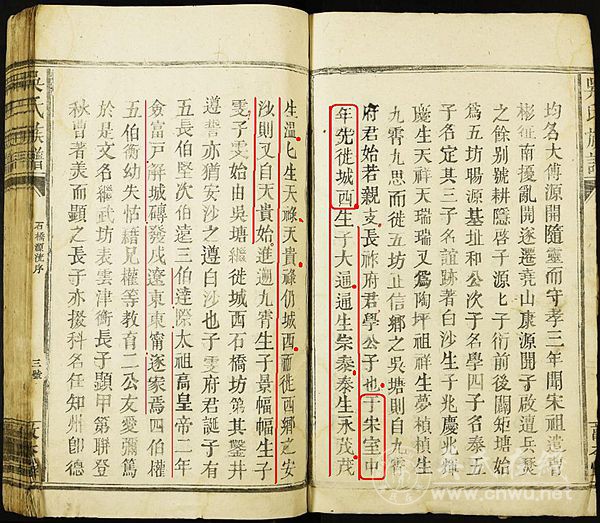 均為大傅源開隨靈而守孝三年聞宋祖遣曹
彬征南擾亂開遂遷堯山康源開子啟遭兵燹
之餘別號耕隱啓子源匕子衍前後闢矩塘始
爲五坊暘源基址和公次子名學四子名泰五
子名定其三子名誼跡著白沙生子兆慶兆
慶生天祥天瑞瑞又爲陶坪祖祥生夢楨楨生
九霄九思而徙五坊止信鄉之吳塘則自九霄
府君始若親支長祿府君學公子也于朱室中
年先徙城西生子大通通生宗泰泰生永茂茂
生溫匕生天祿天貴祿仍城西而徙西鄉之安
沙則又自天貴始進邇九霄生子景幅幅生子
雯子雯始由吳塘繼徙城西石橋坊第其鑿井
遵書亦猶安沙之遵白沙也子雯府君誕子有
五長伯堅次伯遠三伯達際太祖高皇帝二年
僉富戸解城磚發戍遼東東甯遂家焉四伯權
五伯衡幼失怙縉兄權等教育二公友愛彌篤
於是文名繼武坊表雲津衡長子顯甲第聯登
秋曹著美而顕之長子亦掇科名任知州卽德
吳氏族譜
石橋源流序
三號
www.cnwu.net